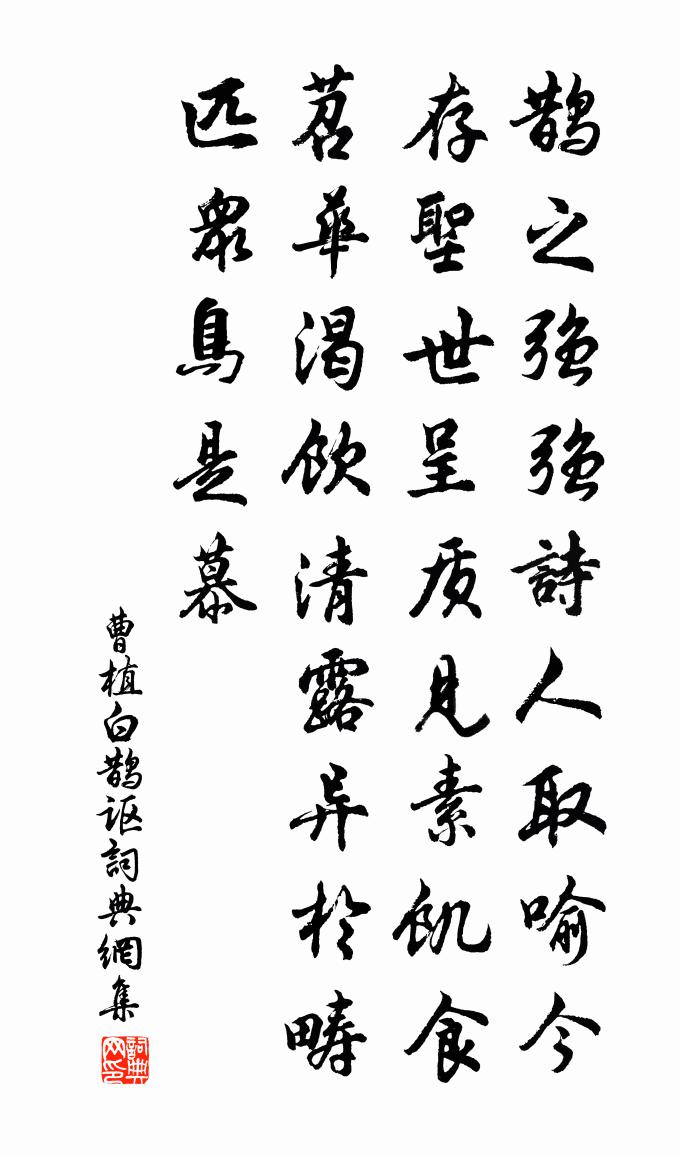 鹊之强强詩人取喻今
存聖世呈质見素飢食
苕華渴飲清露异於畴
匹衆鳥是慕
曹植白鹊讴詞典網集
詞典网印